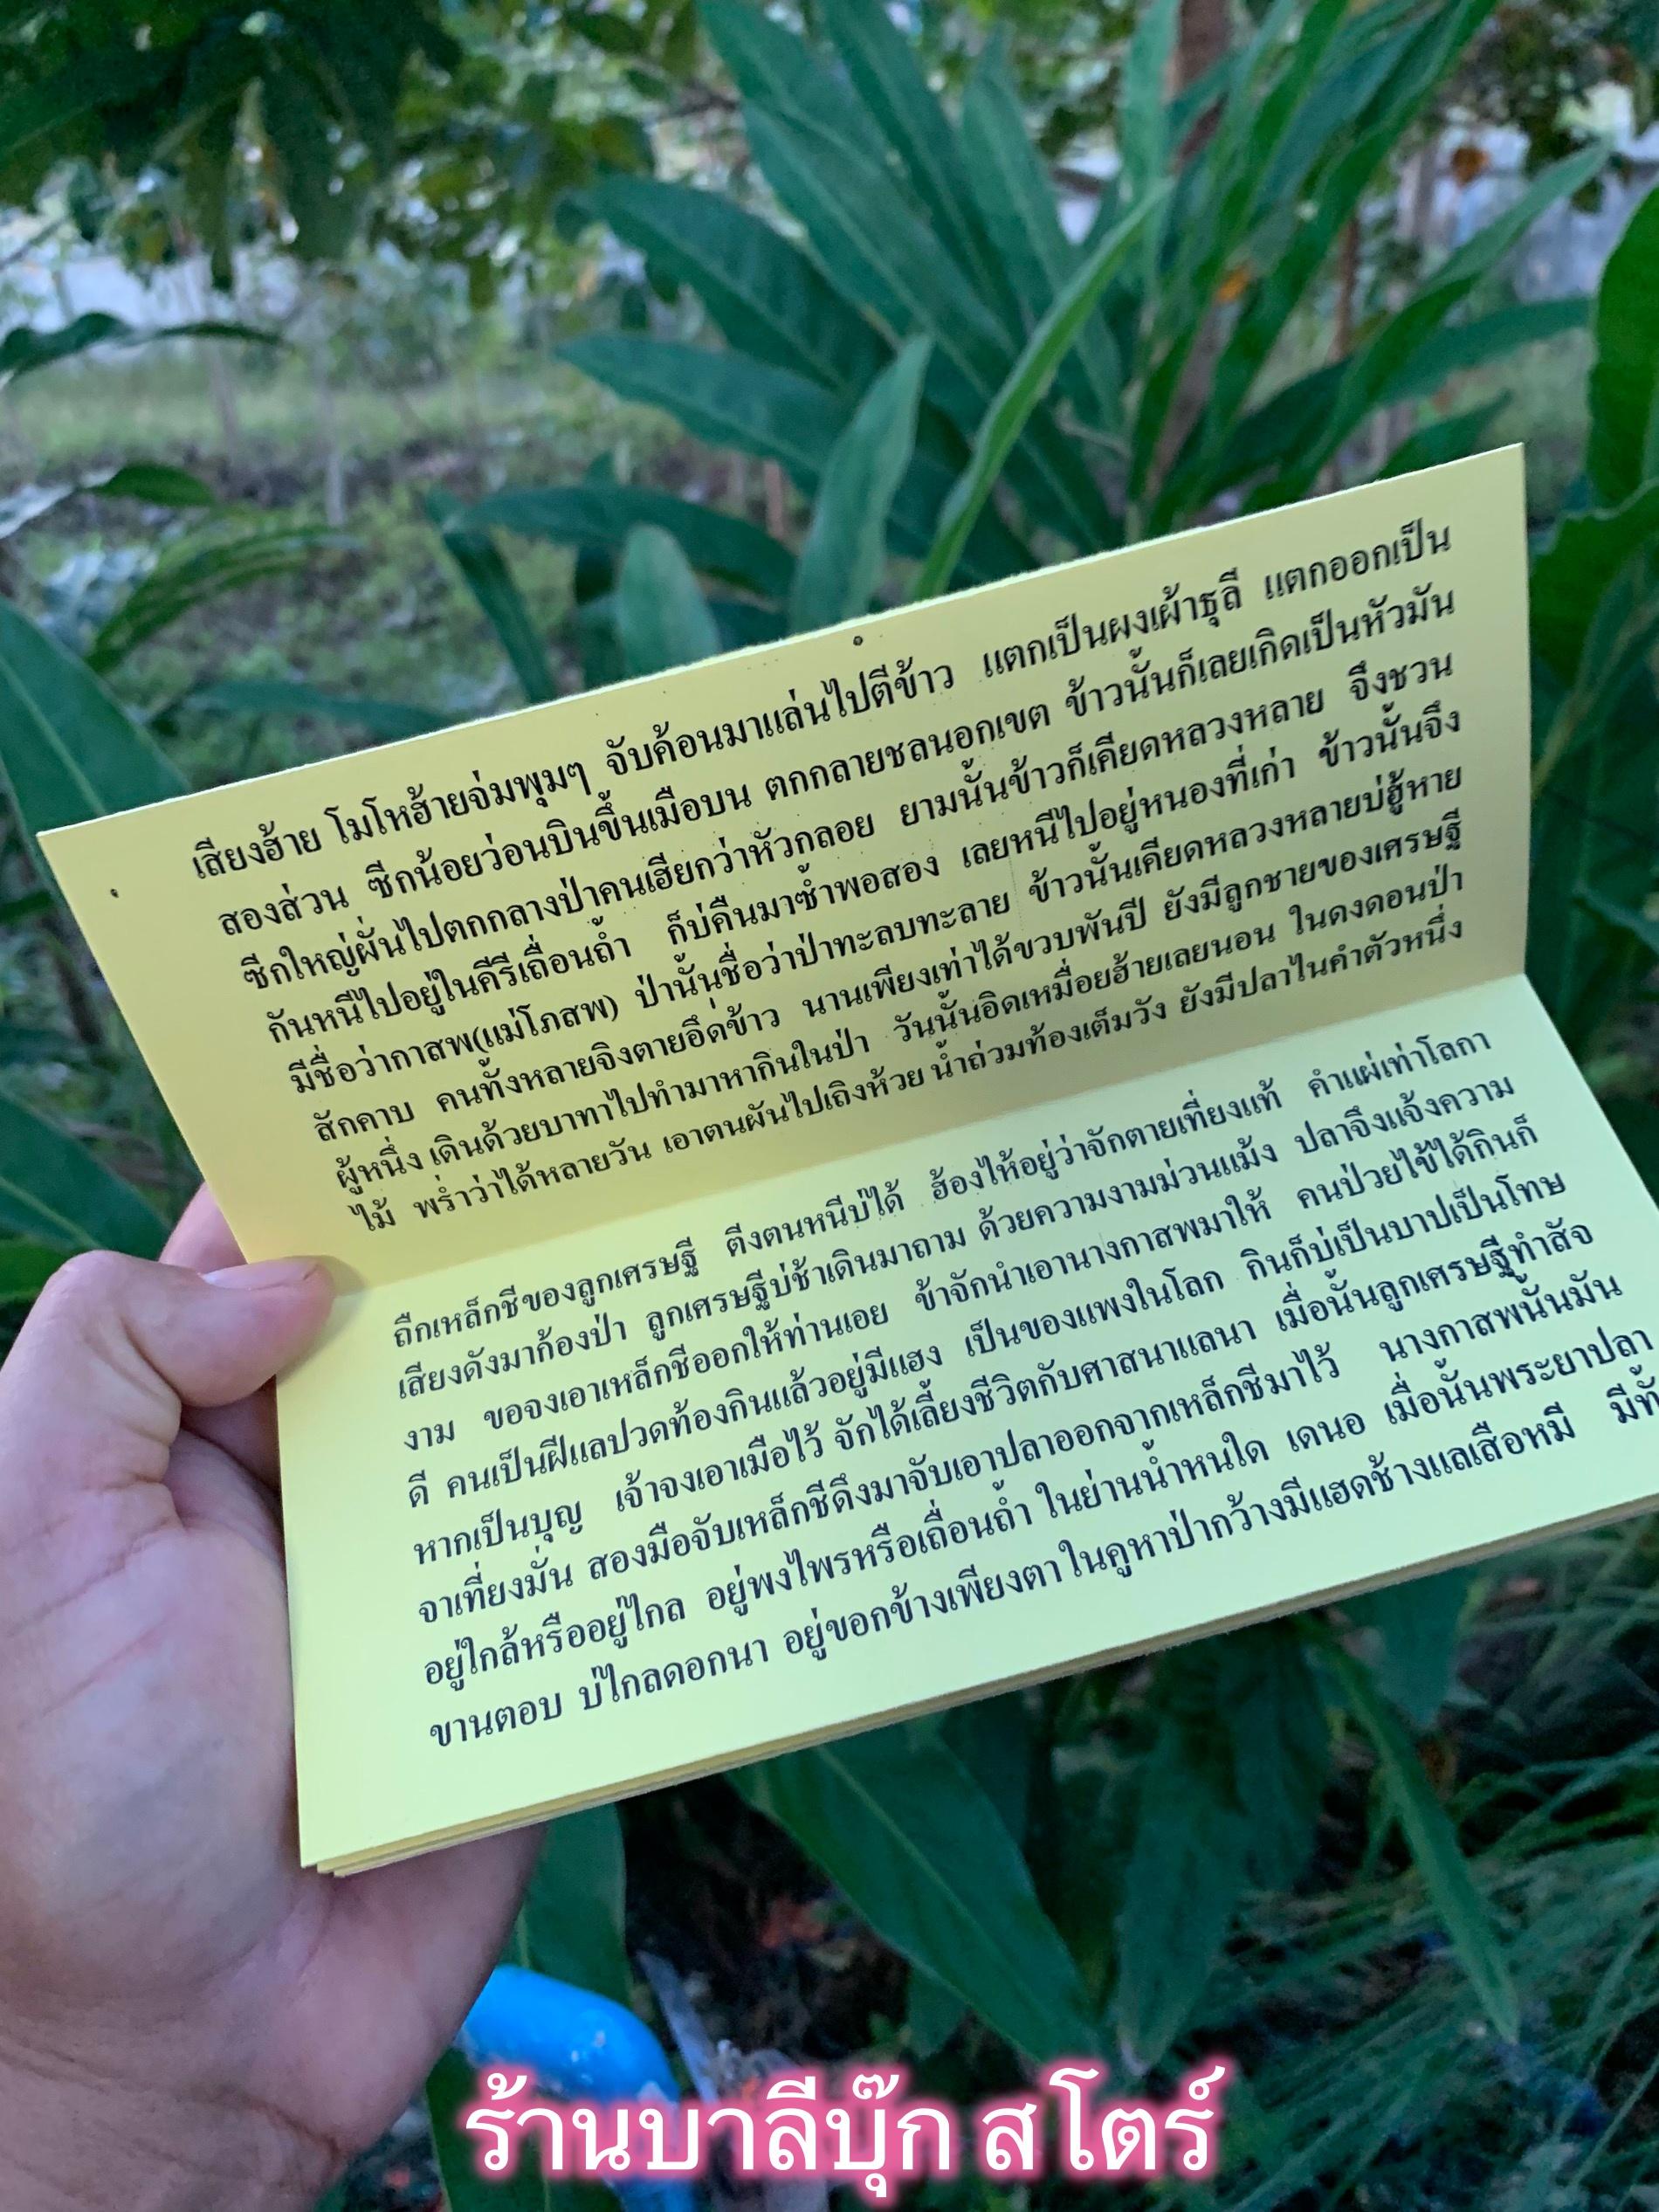 เสียงฮ้าย โมโหฮ้ายจ่มพุมๆ จับค้อนมาแล่นไปตีข้าว แตกเป็นผงเผ้าธุลี แตกออกเป็น
สองส่วน ซีกน้อยว่อนบินขึ้นเมือบน ตกกลายชลนอกเขต ข้าวนั้นก็เลยเกิดเป็นหัวมัน
ซีกใหญ่ผั่นไปตกกลางป่าคนเฮียกว่าหัวกลอย ยามนั้นข้าวก็เคียดหลวงหลาย จึงชวน
กันหนีไปอยู่ในคีรีเถื่อนถ้ำ ก็บ่คืนมาซ้ำพอสอง เลยหนีไปอยู่หนองที่เก่า ข้าวนั้นจึง
มีชื่อว่ากาสพ(แม่โภสพ) ป่านั้นชื่อว่าป่าทะลบทะลาย ข้าวนั้นเคียดหลวงหลายบ่ฮู้หาย
สักคาบ คนทั้งหลายจิงตายอึดข้าว นานเพียงเท่าได้ขวบพันปี ยังมีลูกชายของเศรษฐี
ผู้หนึ่ง เดินด้วยบาทาไปทำมาหากินในป่า วันนั้นอิดเหมื่อยฮ้ายเลยนอน ในดงดอนป่า
ไม้ พร่ำว่าได้หลายวัน เอาตนผันไปเถิงห้วย น้ำถ่วมท้องเต็มวัง ยังมีปลาไนคำตัวหนึ่ง
ถืกเหล็กชีของลูกเศรษฐี ตีงตนหนีบ่ได้ ฮ้องไห้อยู่ว่าจักตายเที่ยงแท้ คำแผ่เท่าโลกา
เสียงดังมาก้องป่า ลูกเศรษฐีบ่ช้าเดินมาถาม ด้วยความงามม่วนแม้ง ปลาจึงแจ้งความ
งาม ขอจงเอาเหล็กชีออกให้ท่านเอย ข้าจักนำเอานางกาสพมาให้ คนป่วยไข้ได้กินก็
ดี คนเป็นฝีแลปวดท้องกินแล้วอยู่มีแฮง เป็นของแพงในโลก กินก็บ่เป็นบาปเป็นโทษ
หากเป็นบุญ เจ้าจงเอาเมือไว้ จักได้เลี้ยงชีวิตกับศาสนาแลนา เมื่อนั้นลูกเศรษฐีทำสัจ
จาเที่ยงมั่น สองมือจับเหล็กชีดึงมาจับเอาปลาออกจากเหล็กชีมาไว้ นางกาสพนั้นมัน
อยู่ใกล้หรืออยู่ไกล อยู่พงไพรหรือเถื่อนถ้ำ ในย่านน้ำหนใด เดนอ เมื่อนั้นพระยาปลา
ขานตอบ บ่ไกลดอกนา อยู่ขอกข้างเพียงตา ในคูหาป่ากว้างมีแฮดช้างแลเสือหมี
ร้านบาลีบุ๊ก สโตร์